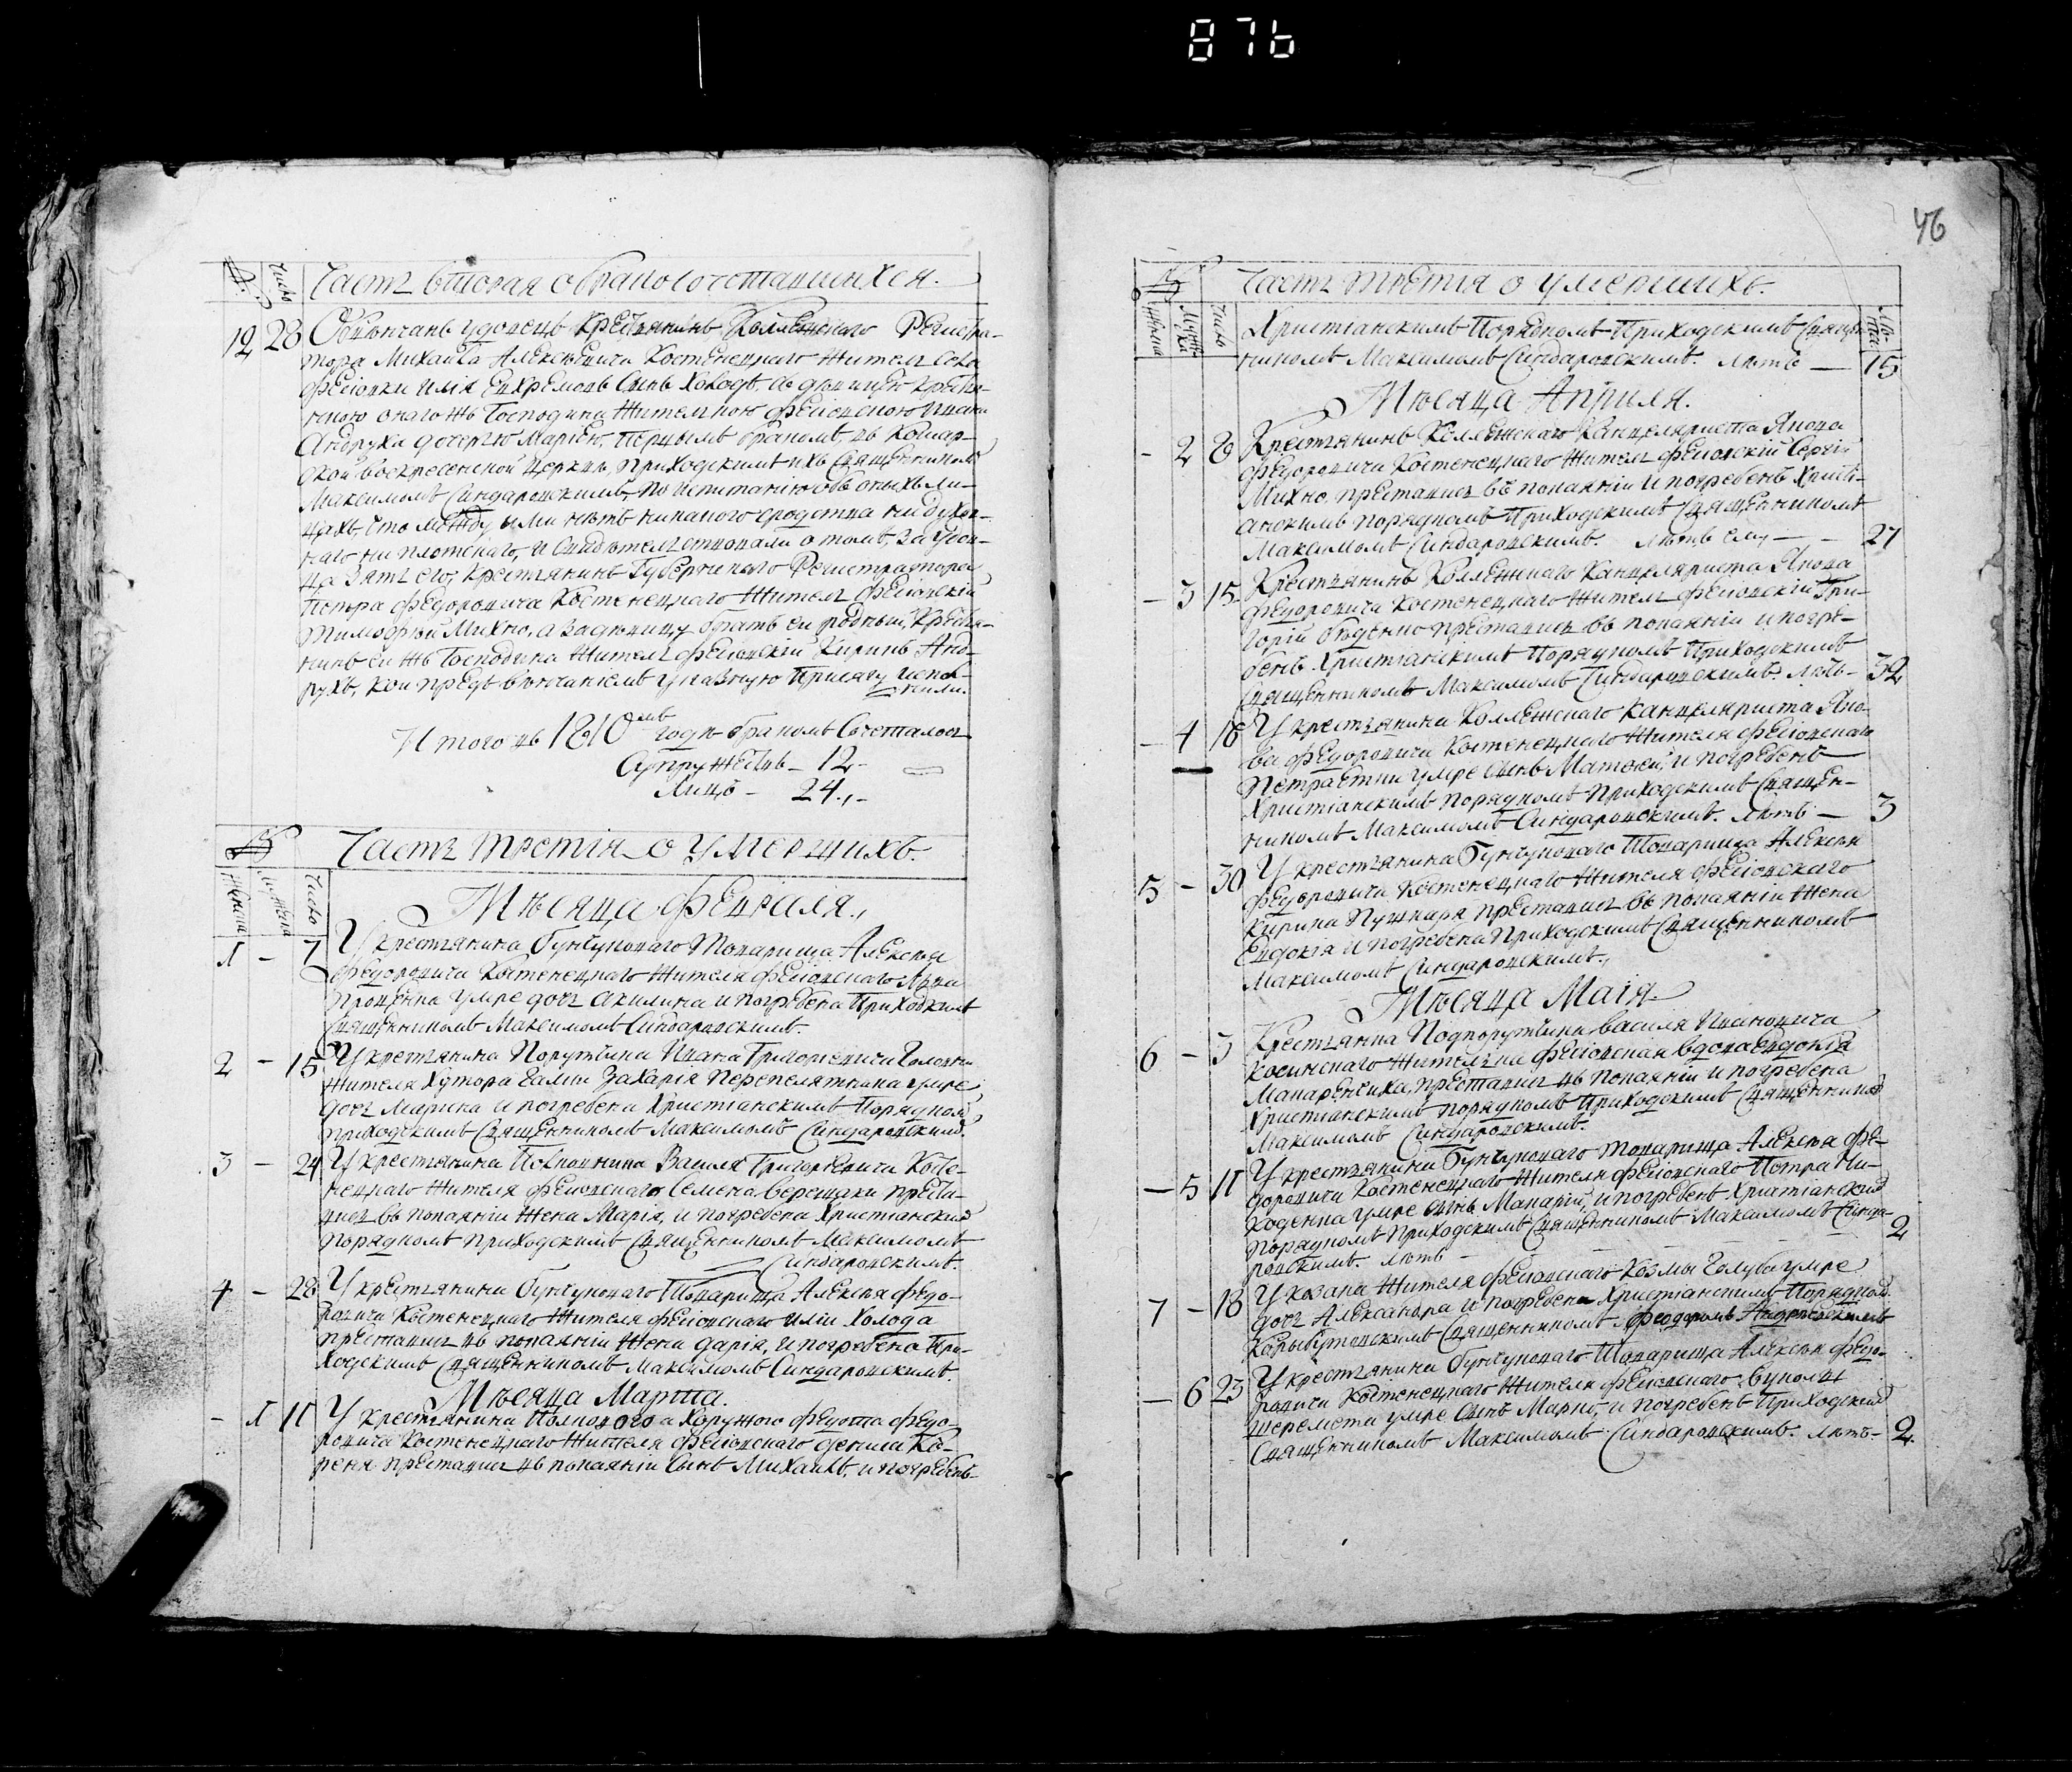 876
46
№ Число Часть вторая о бракосочетавшихся.
12 28 Обвѣнчанъ удовецъ Крестьянинъ Коллежскаго Регистра-
тора Михаила Алексѣевича Костенецкаго Житель села
Фесювки Илія Евхремовъ Сынъ Холодъ, съ дѣвицею крестья-
нскою онагожъ Господина Жителькою Фесювскою Ивана
Андруха дочерью Маріею, первымъ бракомъ, въ
Воскресенской Церкви, Приходскимъ ихъ Священникомъ
Максимомъ Синдаровскимъ, по испитанію объ оныхъ ли-
цахъ, что между ыми нѣтъ никакого сродства ни духов-
наго ни плотскаго, и Свидѣтельствовали о томъ, за удов-
ца Зять его, Крестьянинъ Губернскаго Регистратора
Петра Федоровича Костенецкаго Житель Фесювскій
Тимофѣй Михно, а за дѣвицу братъ ея родный, Крестья-
нинъ сиижъ Господина Житель Фесювскій Кирикъ Анд-
рухъ, кои предъ вѣнчаніемъ указную Присягу испол-
нили.
Итого въ 1810мъ годѣ бракомъ Сочеталось
Супружествъ - 12.
Лицъ - 24.
№ Часть третія о умершихъ.
Женска Мужеска Число
Мѣсяца Февраля.
1 - 7 У крестьянина Бунчуковаго Товарища Алексѣя
Федоровича Костенецкаго Жителя Фесювскаго Луки
Проценка умре дочь Акилина и погребена Приходскимъ
Священникомъ Максимомъ Синдаровскимъ.
2 - 15 У крестьянина Поручика Ивана Григориевича
Жителя Хутора Захарія Перепелятника умре
дочь Марина и погребена Христіанскимъ Порядкомъ
приходскимъ Священникомъ Максимомъ Синдаровскимъ.
3 - 24 У крестьянина Полковника Василя Григориевича Косте-
нецкаго Жителя Фесювскаго Семена Верещаки преста-
вись въ покаяніи Жена Марія, и погребена Христіанскимъ
Порядкомъ приходскимъ Священникомъ Максимомъ
Синдаровскимъ.
4 - 28 У крестьянина Бунчуковаго Товарища Алексѣя Федо-
ровича Костенецкаго Жителя Фесювскаго Иліи Холода
преставись въ покаяніи Жена Дарія, и погребена При-
ходскимъ Священникомъ Максимомъ Синдаровскимъ.
Мѣсяца Марта.
- 1 11 У крестьянина Полкового Хоружого Федота Федо-
ровича Костенецкаго Жителя Фесювскаго Ко-
реня преставись въ покаяніи Сынъ Михаилъ, и погребенъ
№ Часть третія о умершихъ.
Женска Мужеска Число Лѣта
Христіанскимъ Порядкомъ Приходскимъ Свяще-
нникомъ Максимомъ Синдаровскимъ. лѣтъ — 15
Мѣсяца Априля.
- 2 8 Крестьянинъ Коллежскаго Канцеляриста Якова
Федоровича Костенецкаго Житель Фесювскій Сергій
Михно преставись въ покаяніи и погребенъ Христі-
анскимъ порядкомъ Приходскимъ Священникомъ
Максимомъ Синдаровскимъ. лѣтъ ему — 27
- 3 15 Крестьянинъ Коллежскаго Канцеляриста Якова
Федоровича Костенецкаго Житель Фесювскій Гри-
горій преставись въ покаяніи и погре-
бенъ Христіанскимъ Порядкомъ Приходскимъ
Священникомъ Максимомъ Синдаровскимъ. лѣтъ - 32
- 4 18 У крестьянина Коллежскаго Канцеляриста Яко-
ва Федоровича Костенецкаго Жителя Фесювскаго
Петра умре Сынъ Матвей, и погребенъ
Христіанскимъ порядкомъ Приходскимъ Священ-
никомъ Максимомъ Синдаровскимъ. лѣтъ — 3
5 - 30 У крестьянина Бунчуковаго Товарища Алексѣя
Федоровича Костенецкаго Жителя Фесювскаго
Кирика Пушкаря преставись въ покаяніи Жена
Евдокія и погребена Приходскимъ Священникомъ
Максимомъ Синдаровскимъ.
Мѣсяца Маія.
6 - 3 Крестьянка Подпоручика Василя Ивановича
Косинскаго Жителька Фесювская вдова Евдокія
Макаренчиха, преставись въ покаяніи и погребена
Христіанскимъ порядкомъ Приходскимъ Священникомъ
Максимомъ Синдаровскимъ.
- 5 11 У крестьянина Бунчуковаго товарища Алексѣя Фе-
доровича Костенецкаго Жителя Фесювскаго Петра Ни-
коденка умре Сынъ Макарій, и погребенъ Христіанскимъ
Порядкомъ Приходскимъ Священникомъ Максимомъ Синда-
ровскимъ. лѣтъ — 2
7 - 18 У козака Жителя Фесювскаго Козмы Голуба умре
дочь Александра и погребена Христіанскимъ Порядкомъ
Корыбутовскимъ Священникомъ Феодоромъ Андреевскимъ
- 6 23 У крестьянина Бунчуковаго Товарища Алексѣя Федо-
ровича Костенецкаго Жителя Фесювскаго Вукола
Шеремета умре Сынъ Марко, и погребенъ Приходскимъ
Священникомъ Максимомъ Синдаровскимъ. лѣтъ - 2.